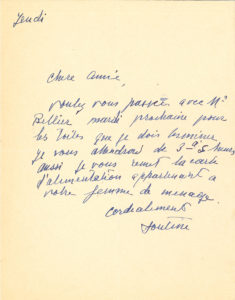 Jeudi
Chere amie,
voulez vous passer avec Mr
Bellier mardi prochaine pour
les toiles que je dois terminer
je vous attendrai de 3 a 5 heures
aussi je vous remet la carte
d'alimentation appartenant a
votre femme de menage.
cordialement
Soutine